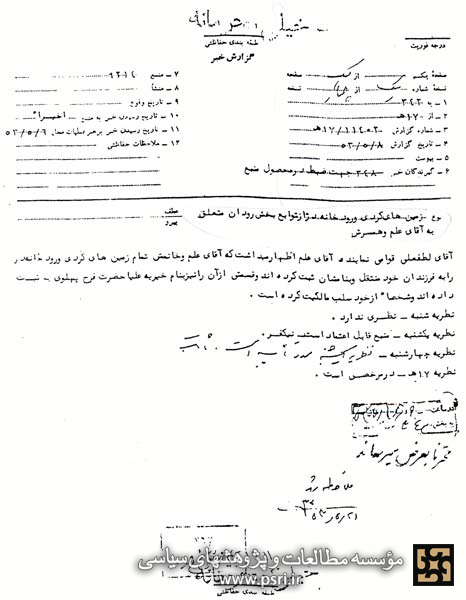 خیلی محرمانه
طبقه بندی حفاظتی
درجه فوریت
گزارش خبر
صفحه یک از یک صفحه
نسخه شماره از نسخه
۱ - به ۳۴۳
۲ - از ۱۷هـ
۳ - شماره گزارش
۴ - تاریخ گزارش ۵۳/۵/۸
۵ - پیوست
۶ - گیرندگان خبر ۳۴۸ جهت ضبط در محصول منبع
۷ - منبع
۸ - منشأ
۹ - تاریخ وقوع
۱۰ - تاریخ رسیدن خبر به منبع اخیرا"
۱۱ - تاریخ رسیدن خبر برهبر عملیات محل ۵۳/۵/۶
۱۲ - ملاحظات حفاظتی
زمین های کردی و رودخانه دزاز توابع بخش رودان متعلق
به آقای علم و همسرش
عطف
پیرو
آقای لطفعلی قوامی نماینده آقای علم اظهار میداشت که آقای علم و خانمش تمام زمین های کردی و رودخانه دز
را به فرزندان خود منتقل و بنامشان ثبت کرده اند و قسمتی از آن را نیز بنام خیریه علیاحضرت فرح پهلوی به ثبت
داده اند و شخصا" از خود سلب مالکیت کرده است .
نظریه شنبه - نظری ندارد .
نظریه یکشنبه - منبع قابل اعتماد است. نیکفر.
نظریه چهارشنبه - نظریه یکشنبه مورد تأیید است .
نظریه ۱۷هـ - درمرخصی است .
محترما بعرض میرساند
ملاحظه شد
مؤسسه مطالعات و پژوهشهای سیاسی
www.psri.ir
طبقه بندی حفاظتی